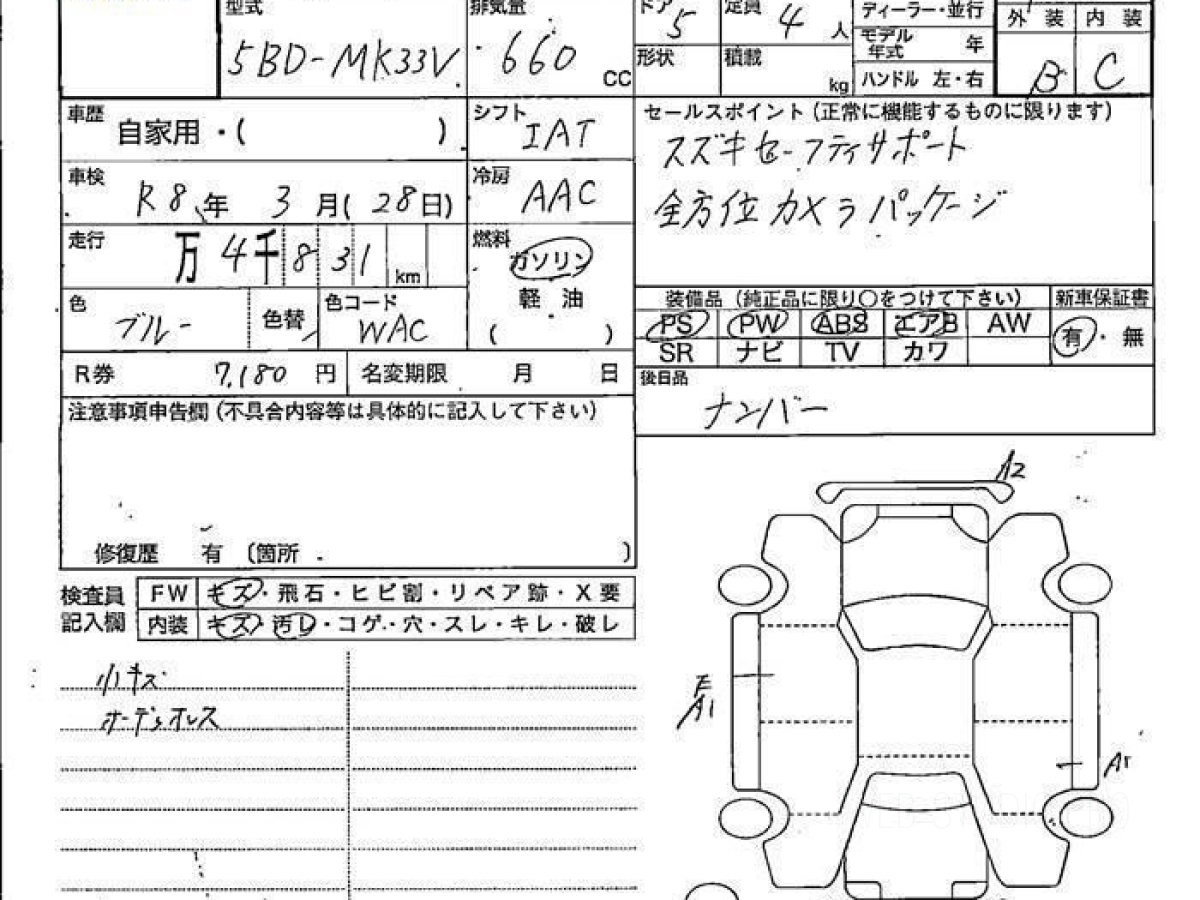 型式 排気量 ドア 5 定員 4 人 ディーラー・並行 外装 内装
5BD-MK33V 660 CC モデル年式 年
形状 積載 kg ハンドル 左・右 B C
車歴 自家用・( ) シフト IAT セールスポイント (正常に機能するものに限ります)
スズキセーフティサポート
車検 R8年 3月(28日) 冷房 AAC
全方位カメラパッケージ
走行 万4千831 km 燃料 ガソリン
軽油
( )
色 ブルー 色替 色コード WAC
装備品 (純正品に限り○をつけて下さい) 新車保証書
PS PW ABS エアB AW 有・無
SR ナビ TV カワ
R券 7,180円 名変期限 月 日
後日品
ナンバー
注意事項申告欄 (不具合内容等は具体的に記入して下さい)
修復歴 有 〔箇所 〕
検査員記入欄
FW キズ・飛石・ヒビ割・リペア跡・X要
内装 キズ・汚レ・コゲ・穴・スレ・キレ・破レ
小キズ
オーディオレス
A2
E
A1
A1